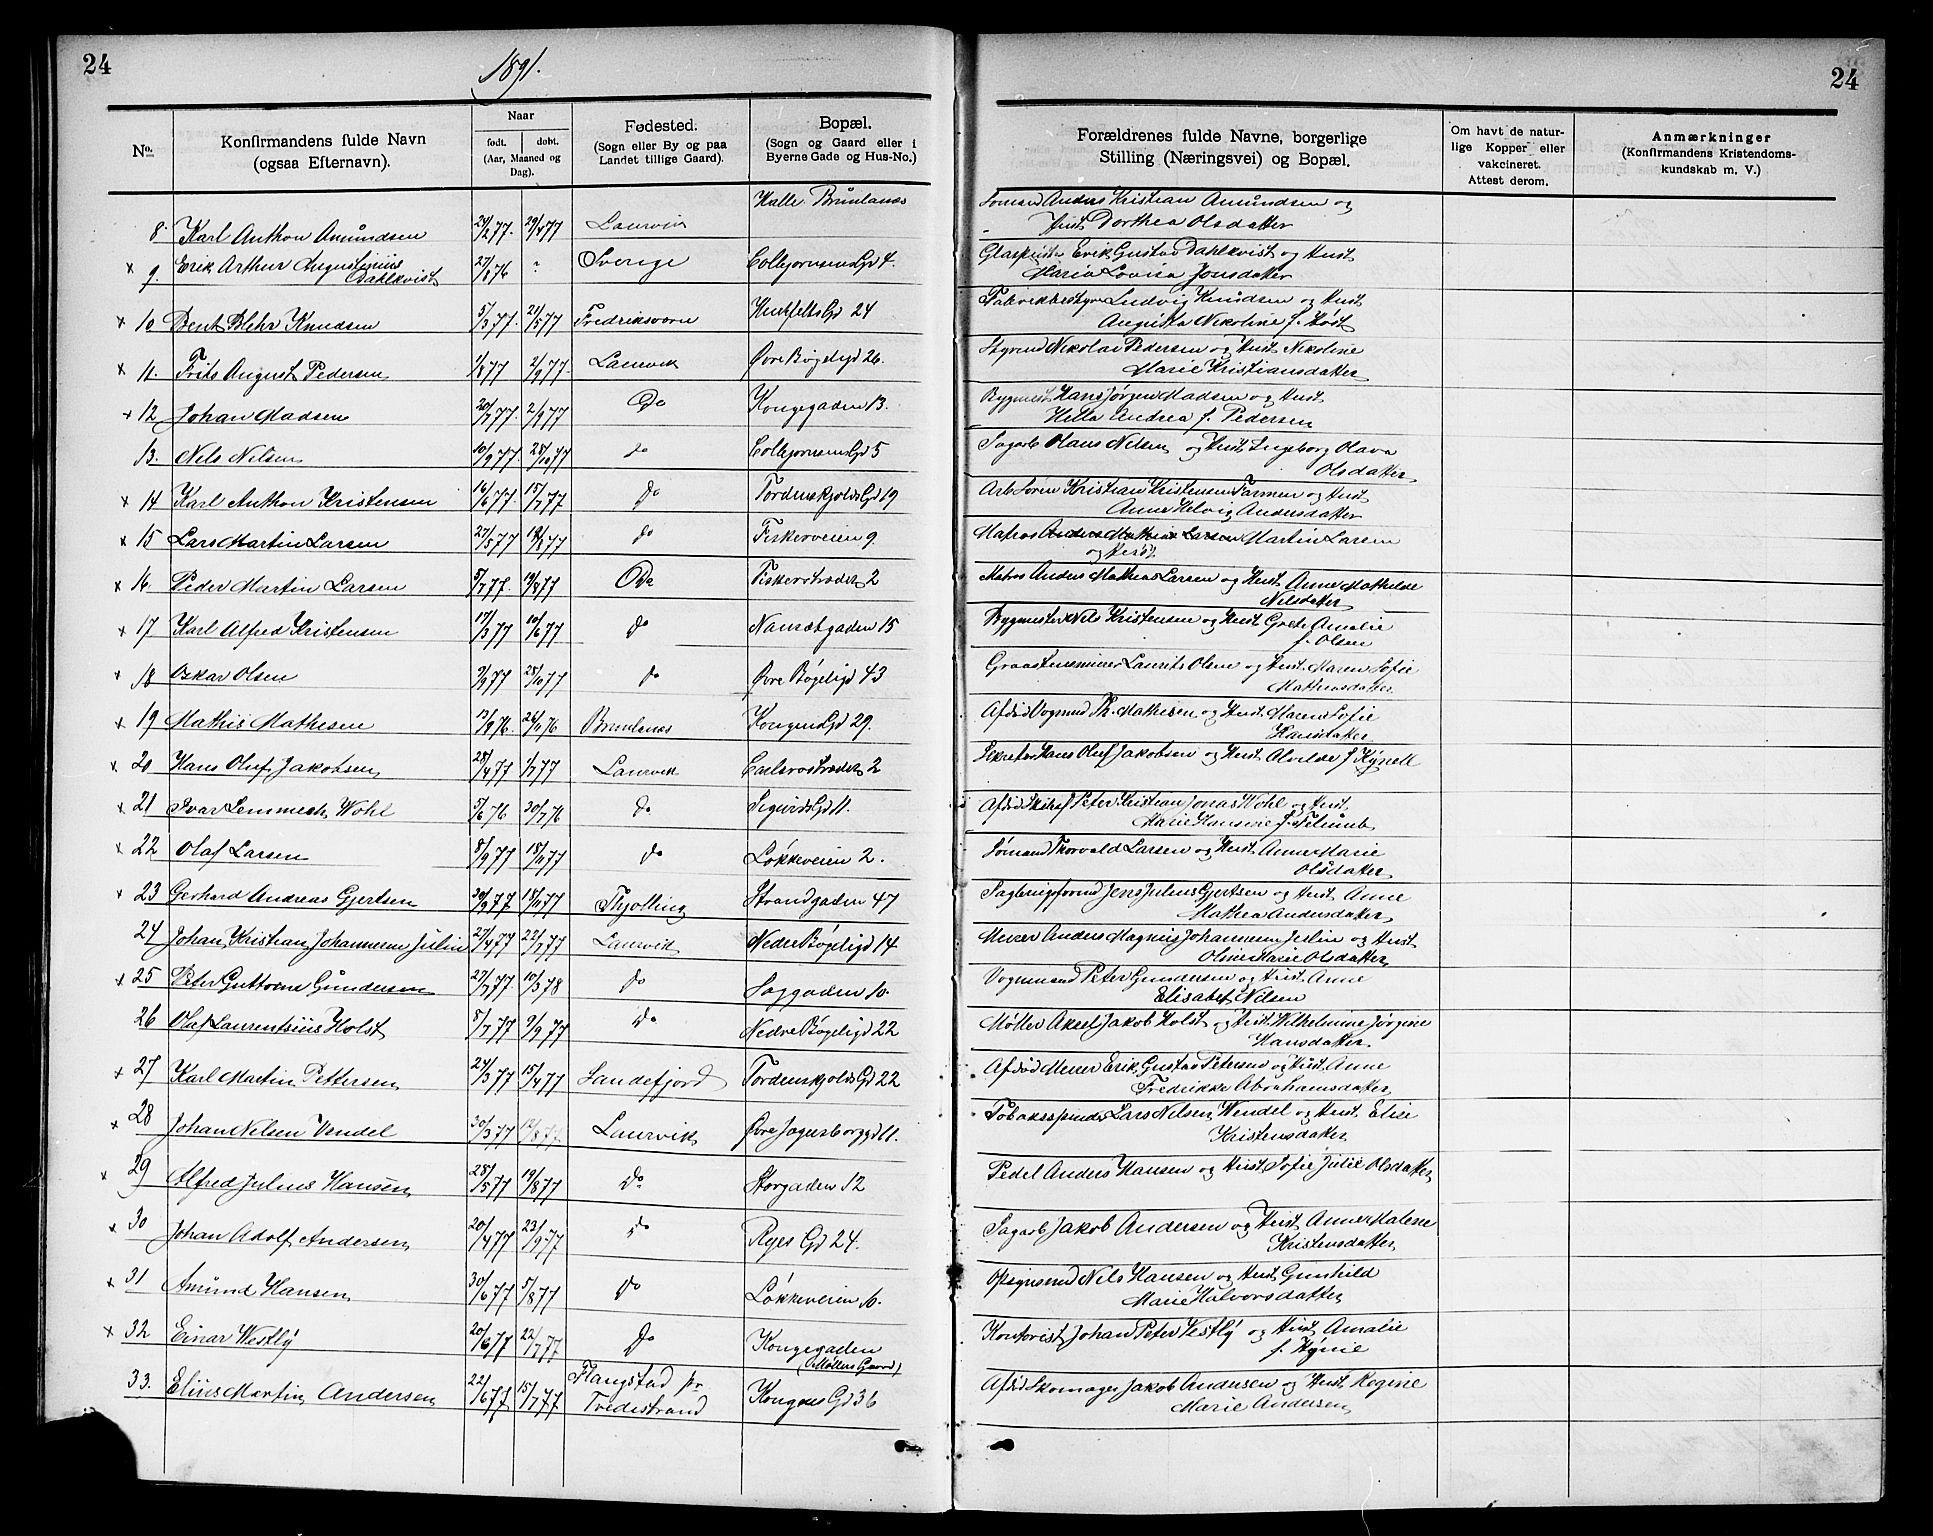 24
1891.
24
No.
Konfirmandens fulde Navn
(ogsaa Efternavn).
Naar
født. døbt.
(Aar, Maaned og
Dag).
Fødested.
(Sogn eller By og paa
Landet tillige Gaard).
Bopæl.
(Sogn og Gaard eller i
Byerne Gade og Hus-No.)
Forældrenes fulde Navne, borgerlige
Stilling (Næringsvei) og Bopæl.
Om havt de natur-
lige Kopper eller
vakcineret.
Attest derom.
Anmærkninger
(Konfirmandens Kristendoms-
kundskab m. V.)
Halle Brunlanes Sømand Anders Kristian Amundsen og
8. Karl Anthon Amundsen 24/2 77. 29/4 77 Laurvik Hust. Dorthea Olsdatter
x 9. Erik Arthur Augustinius Dahlkvist 27/8 76 - Sverige Colbjørnsens Gd 4. Erik Gustav Dahlkvist og Hust.
Maria Lovisa Jonsdatter
x 10 Bent Blehr Knudsen 5/3 77. 21/5 77 Fredriksværn Gd 24 Fabrikbestyrer Ludvig Knudsen og Hust
Augusta Nikoline f. Høst
x 11. Frits August Pedersen 1/8 77 2/9 77 Laurvik Øvre Bøgeligd 26. Styrmd Nikolai Pedersen og Hust Nikoline
Marie Kristiansdatter
x 12 Johan Madsen 20/7 77. 2/9 77 Do Kongegaden 13. Bygmest. Hans Jørgen Madsen og Hust.
Andrea f. Pedersen
13. Nels Nilsen 10/9 77 28/10 77 do Colbjørnsens Gd 5 Sagarb Olaus Nilsen og Hust. Ingeborg Olava
Olsdatter
x 14 Karl Anthon Kristensen 16/6 77. 15/7 77 Do Tordenskjolds Gd 19 Arb Søren Kristian Kristensen Farmen og Hust
Anne Helvig Andersdatter
x 15 Lars Martin Larsen 27/5 77 19/8 77 do Fiskerveien 9. Matros Anders Mathias Larsen Martin Larsen
og Hust.
x 16. Peder Martin Larsen 5/7 77. 19/8 77 Do Fiskerstrædet 2 Matros Anders Mathias Larsen og Hust. Anne Mathilde
Nilsdatter
x 17 Karl Alfred Kristensen 17/3 77 10/6 77 do Nansetgaden 15 Bygmester Nils Kristensen og Hust Grete Amalie
f. Olsen
x 18 Oskar Olsen 9/9 77 25/10 77 do Øvre Bøgeligd 43 Graastensminer Laurits Olsen og Hust. Maren Sofie
Mathisdatter
x 19 Mathis Mathisen 13/9 76. 26/11 76 Brunlanes Kongens Gd 29. Afdød Vognmd Th. Mathisen og Hust. Maren Sofie
Hansdatter
x 20 Hans Oluf Jakobsen 28/4 77 1/7 77 Laurvik 2 Hans Oluf Jakobsen og Hust Alvilde f.
x 21 Ivar Lemmich Wohl 5/6 76 30/7 76 do Sigurds Gd 11. Afdød Peter Kristian Jonas Wohl og Hust
Marie Hansine f.
x 22 Olaf Larsen 8/9 77 18/11 77 do Løkkeveien 2. Sømand Thorvald Larsen og Hust. Anne Marie
Olsdatter
x 23 Gerhard Andreas Gjertsen 30/9 77 18/11 77 Thjølling Strandgaden 47 Jens Julius Gjertsen og Hust Anne
Mathea Andersdatter
24 Johan Kristian Johannesen Julin 27/4 77 22/7 77 Laurvik Nedre Bøgeligd 14 Murer Anders Magnus Johannesen Julin og Hust
Oline Marie Olsdatter
x 25 Peter Guttorm Gundersen 27/7 77. 10/3 78 do Saggaden 10. Vognmand Peter Gundersen og Hust. Anne
Elisabet Nilsen
26 Olaf Laurentsius Holst 5/7 77 9/9 77 do Nedre Bøgeligd 22 Møller Aksel Jakob Holst og Hust Wilhelmine Jørgine
Hansdatter
x 27 Karl Martin Pettersen 24/3 77 15/4 77 Sandefjord Tordenskjolds Gd 22 Afdød Murer Erik Gustav Petersen og Hust. Anne
Fredrikke Abrahamsdatter
x 28 Johan Nilsen Vendel 30/3 77 12/8 77. Laurvik Øvre Jegersborggd 11. Tobaksspinder Lars Nilsen Wendel og Hust. Elise
Kristensdatter
x 29 Alfred Julius Hansen 28/5 77 19/8 77 do Storgaden 12 Pedel Anders Hansen og Hust Sofie Julie Olsdatter
x 30 Johan Adolf Andersen 20/4 77 23/9 77 do Ryes Gd 24. Sagarb Jakob Andersen og Hust Anne Malene
Kristensdatter
x 31 Amund Hansen 30/6 77 5/8 77 do Løkkeveien 10. Opsynsmd Nils Hansen og Hust Gunhild
Marie Halvorsdatter
x 32 Einar Westly 20/6 77 22/7 77 do Kongegaden
(Møllers Gaard) Kontorist Johan Peter Vestly og Hust Amalie
f.
33. Elius Martin Andersen 22/6 77 15/7 77 Flangstad pr
Tvedestrand Kongens Gd 36 Afdød Skomager Jakob Andersen og Hust Regine
Marie Andersen